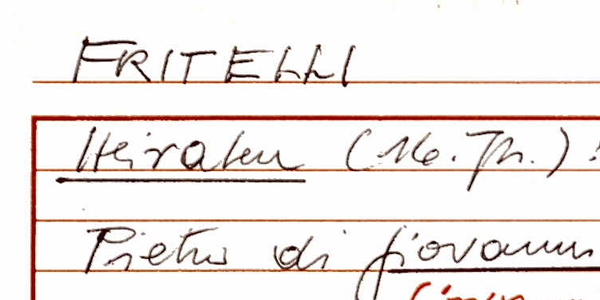 FRITELLI
Heiraten (16. Jh.):
Pietro di Giovanni